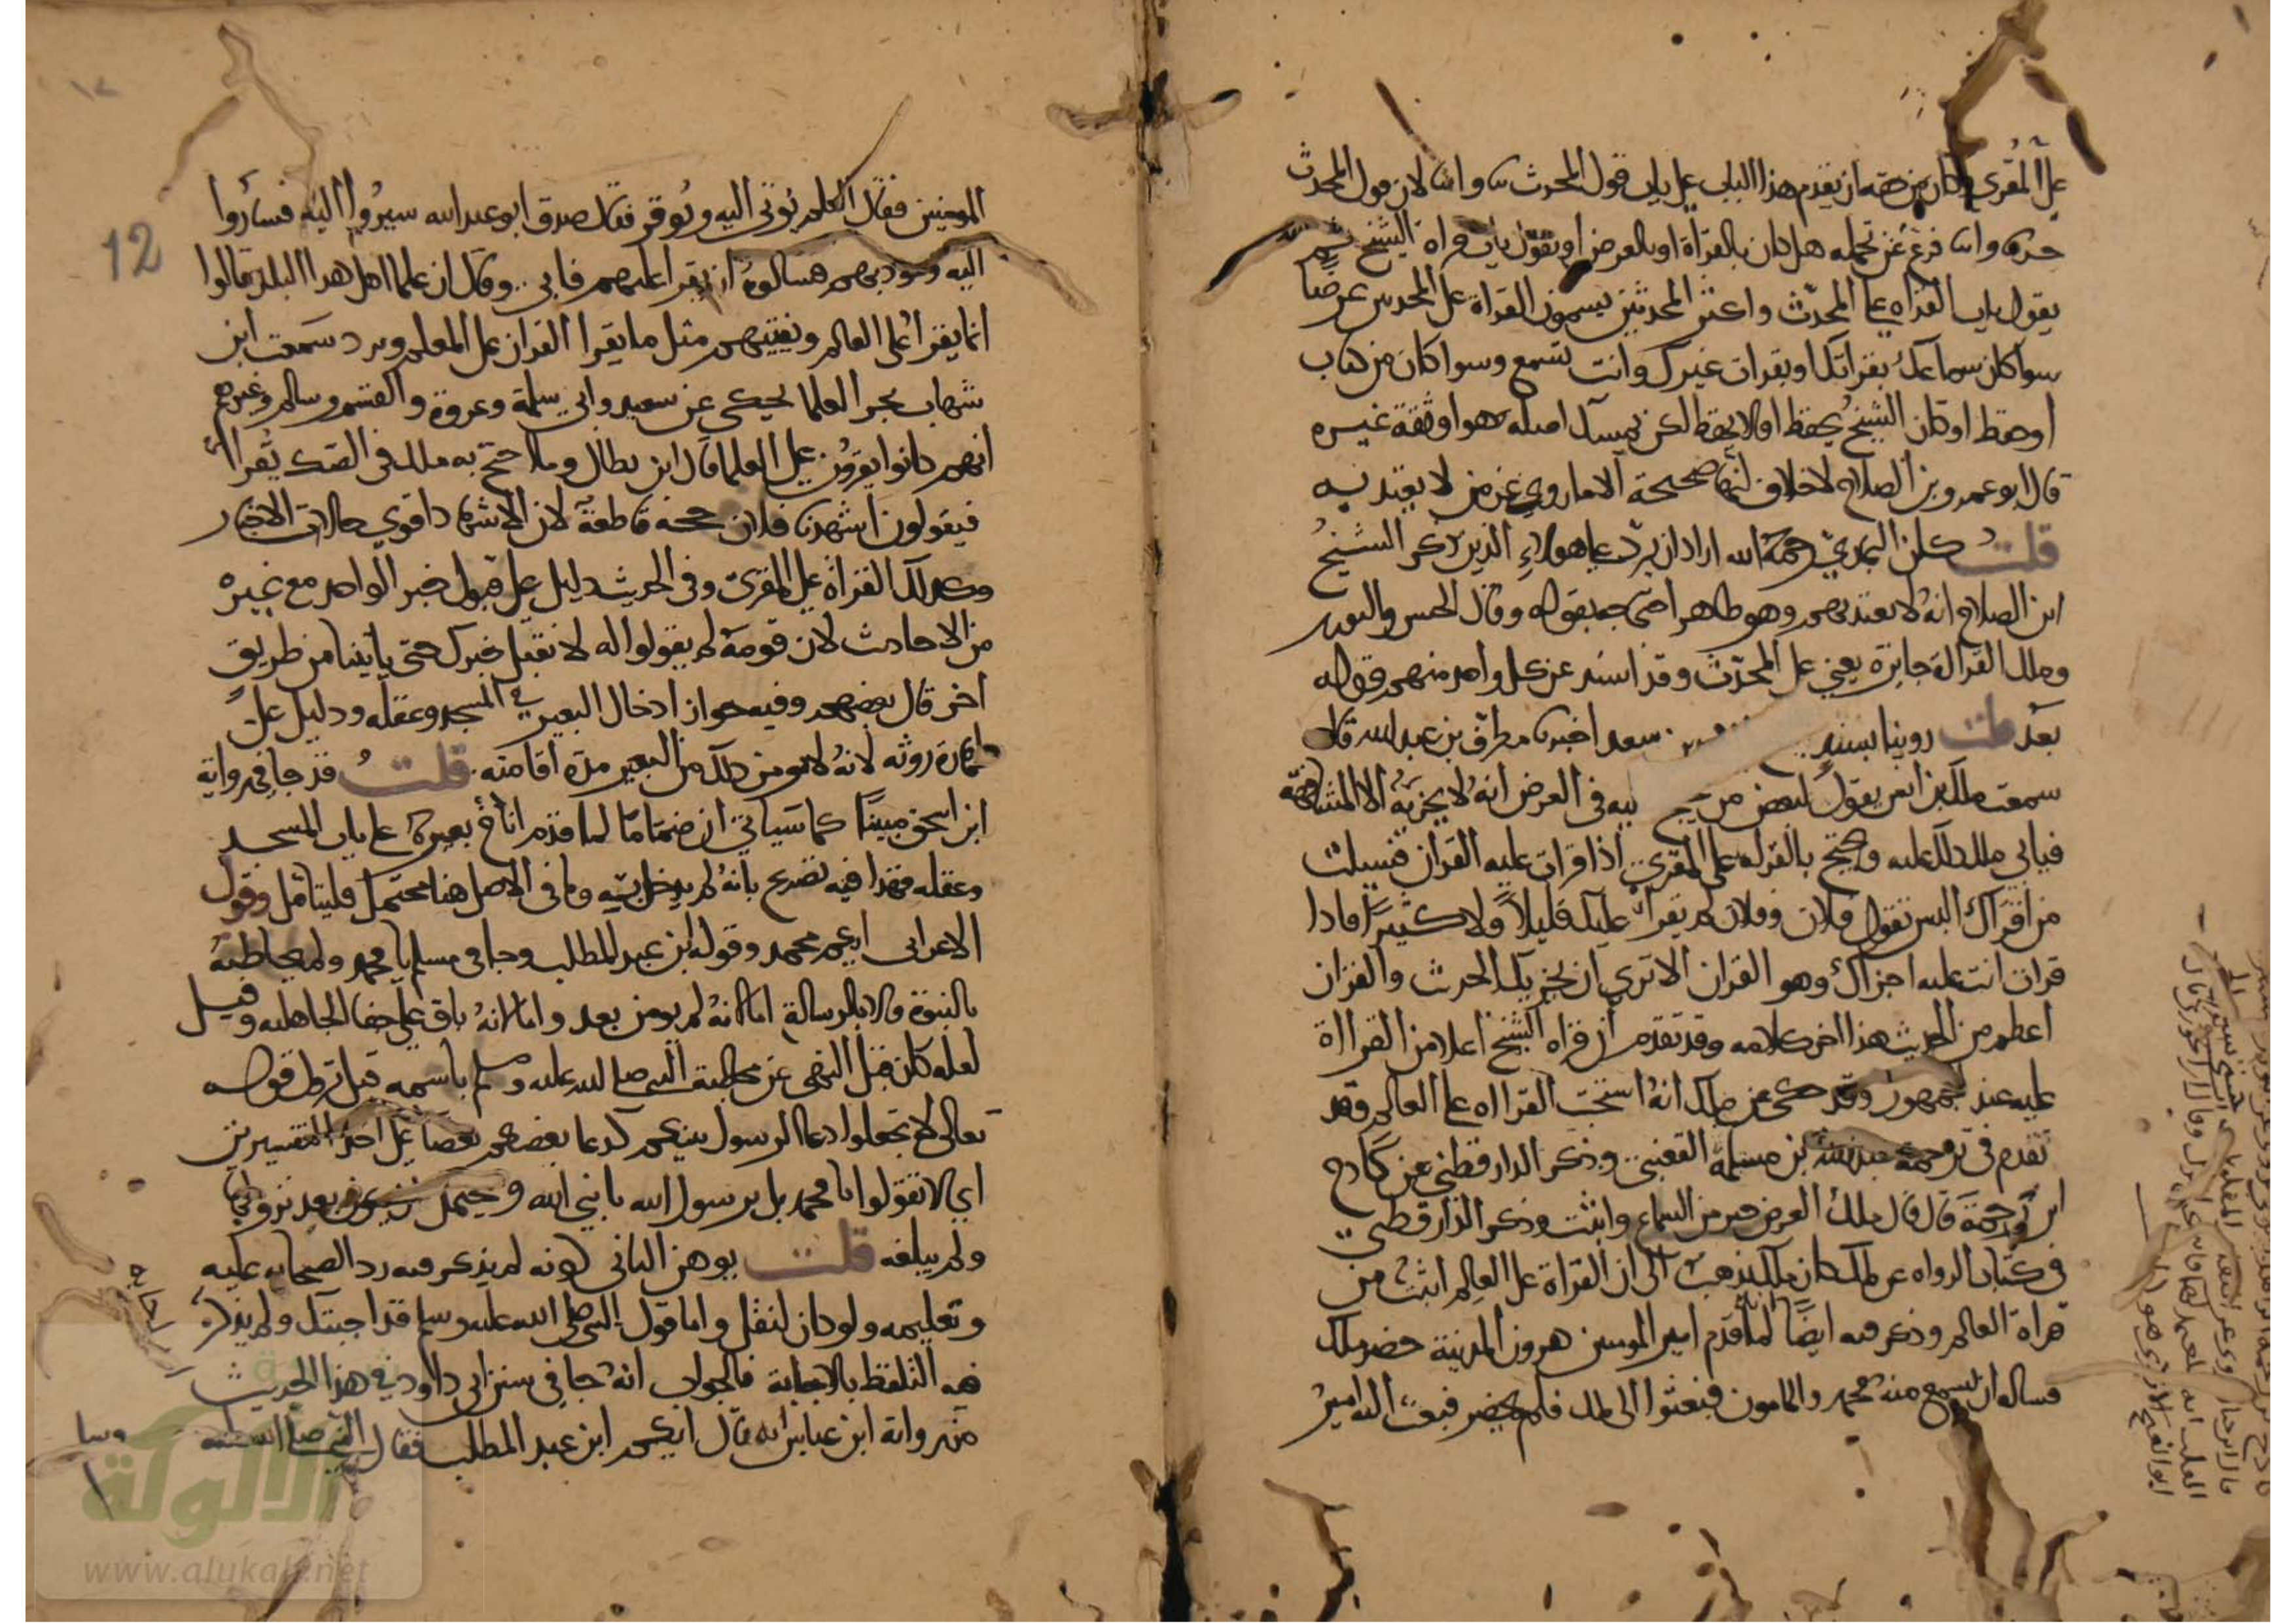 على المقرئ وكان من حقه ان يقدم هذا الباب على باب قول المحدث نا وانا لان قول المحدث
حدثنا وانا فرع عن تحمله هل كان بالقراة او بالعرض او يقول باب قراة الشيخ ثم
يقول باب القراه على المحدث واكثر المحدثين يسمون القراة على المحدث عرضا
سوا كان سماعك بقراتك او بقراة غيرك وانت تسمع وسوا كان من كتاب
او حفظ او كان الشيخ يحفظ او لا يحفظ لكن يمسك اصله هو او ثقة غيره
قال ابو عمرو بن الصلاح لا خلاف انها صحيحة الا ما روي عن من لا يعتد به
قلت كان البخاري رحمه الله اراد ان يرد على هولاءِ الذين ذكر الشيخ
ابن الصلاح انه لا يعتد بهم وهو ظاهر احتجاجه بقوله وقال الحسن والثوري
وملك القراة جايزة يعني على المحدث وقد اسند عن كل واحد منهم قوله
بعد قلت روينا بسند سعد اخبرنا مطرف بن عبد الله قال
سمعت ملك بن انس يقول لبعض من يحتج عليه في العرض انه لا يجزيه الا المشافهة
فيابى ملك ذلك عليه ويحتج بالقراة على المقرئ اذا قرات عليه القران فسيلت
من اقراك اليس تقول فلان وفلان لم يقرا عليك قليلا ولا كثيرا فاذا
قرات انت عليه اجزاك وهو القران الا ترى ان يجزيك الحديث والقران
اعظم من الحديث هذا اخر كلامه وقد تقدم ان قراه الشيخ اعلا من القراة
عليه عند الجمهور وقد حكى عن ملك انه استحب القراه على العالم وقد
تقدم في ترجمة عبد الله بن مسلمة القعنبي وذكر الدارقطني عن كادح
ابن رحمة قال قال ملك العرض خير من السماع واثبت وذكر الدارقطني
في كتاب الرواه عن ملك كان ملك يذهب الى ان القراة على العالم اثبت من
قراة العالم وذكر فيه ايضا انه لما قدم امير المومنين هرون المدينة حضر ملك
فساله ان يسمع منه محمد والمامون فبعثوا الى ملك فلم يحضر فبعث اليه امير
المومنين فقال العلم يوتى اليه ويوقر فقال صدق ابو عبد الله سيروا اليه فساروا
اليه وهود بهم فسالوه ان يقرا عليهم فابى وقال ان علما اهل هذا البلد قالوا
انما يقرا على العالم ويفتيهم مثل ما يقرا القران على المعلم ويرد سمعت ابن
شهاب بحر العلما يحكي عن سعيد وابي سلمة وعروة والقسم وسالم وغيرهم
انهم كانوا يقرون على العلما قال ابن بطال وما احتج به ملك في الصك يقرا
فيقولون اشهدنا فلان حجة قاطعة لان الاشهاد اقوى حالات الاخبار
وكذلك القراة على المقرئ وفي الحديث دليل على قبول خبر الواحد مع غيره
من الاحاديث لان قومه لم يقولوا له لا نقبل خبرك حتى ياتينا من طريق
اخر قال بعضهم وفيه جواز ادخال البعير في المسجد وعقله ودليل على
طهارة روثه لانه لا يومن ذلك من البعير مدة اقامته قلت قد جا في رواية
ابن اسحق مبينا كما سياتي ان ضماما لما قدم اناخ بعيره على باب المسجد
وعقله فهذا فيه تصريح بانه لم يدخل به وما في الاصل هنا محتمل فليتامل وقول
الاعرابي ايكم محمد وقوله ابن عبد المطلب وجا في مسلم يا محمد ولم يخاطبه
بالنبوة ولا بالرسالة اما لانه لم يومن بعد واما لانه باق على جفا الجاهليه وقيل
لعله كان قبل النهي عن مخاطبة النبي صلى الله عليه وسلم باسمه قبل نزول قوله
تعالى لا تجعلوا دعا الرسول بينكم كدعا بعضكم بعضا على احد التفسيرين
اي لا تقولوا يا محمد بل يا رسول الله يا نبي الله ويحتمل ان يكون بعد نزولها
ولم يبلغه قلت يوهن الثاني كونه لم يذكر فيه رد الصحابه عليه
وتعليمه ولو كان لنقل واما قول النبي صلى الله عليه وسلم قد اجبتك ولم يذكر
فيه التلفظ بالاجابة فالجواب انه جا في سنن ابي داود في هذا الحديث
من رواية ابن عباس انه قال ايكم ابن عبد المطلب فقال النبي صلى الله عليه
12
الالوكة
www.alukah.net